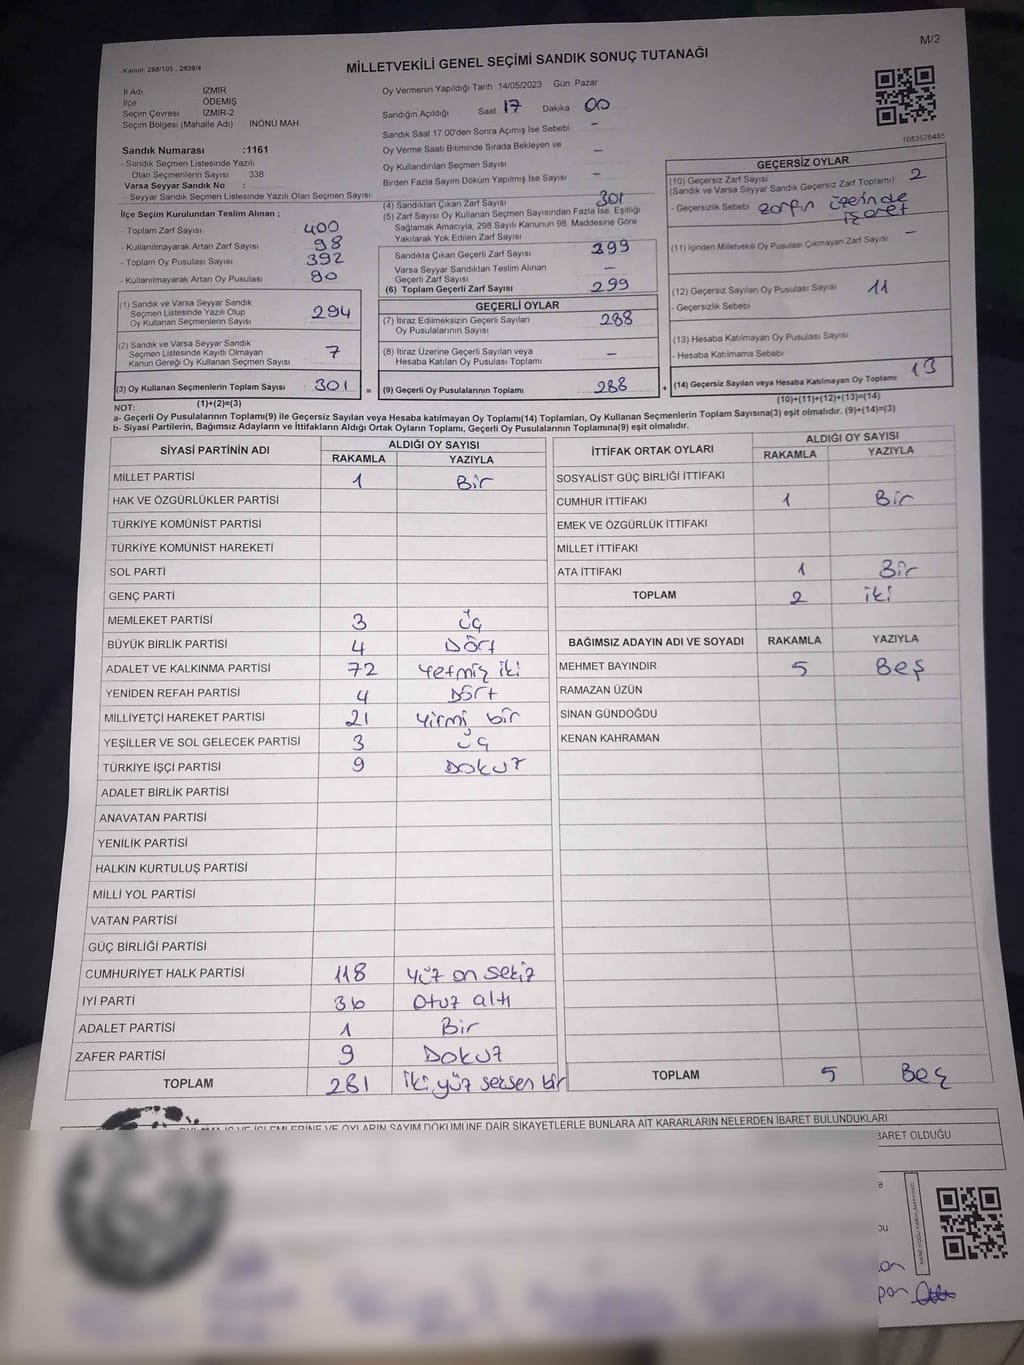 M/2
Kanun: 298/105 , 2839/4
MİLLETVEKİLİ GENEL SEÇİMİ SANDIK SONUÇ TUTANAĞI
İl Adı İZMİR
İlçe ÖDEMİŞ
Seçim Çevresi İZMİR-2
Seçim Bölgesi (Mahalle Adı) İNÖNÜ MAH.
Sandık Numarası :1161
- Sandık Seçmen Listesinde Yazılı
Olan Seçmenlerin Sayısı : 338
Varsa Seyyar Sandık No :
- Seyyar Sandık Seçmen Listesinde Yazılı Olan Seçmen Sayısı:
İlçe Seçim Kurulundan Teslim Alınan ;
- Toplam Zarf Sayısı : 400
- Kullanılmayarak Artan Zarf Sayısı : 98
- Toplam Oy Pusulası Sayısı : 392
- Kullanılmayarak Artan Oy Pusulası : 90
(1) Sandık ve Varsa Seyyar Sandık
Seçmen Listesinde Yazılı Olup
Oy Kullanan Seçmenlerin Sayısı : 294
(2) Sandık ve Varsa Seyyar Sandık
Seçmen Listesinde Kayıtlı Olmayan
Kanun Gereği Oy Kullanan Seçmen Sayısı : 7
(3) Oy Kullanan Seçmenlerin Toplam Sayısı : 301 =
(1)+(2)=(3)
Oy Vermenin Yapıldığı Tarih :14/05/2023 Gün: Pazar
Sandığın Açıldığı Saat 17 Dakika 00
Sandık Saat 17:00'den Sonra Açımış İse Sebebi –
Oy Verme Saati Bitiminde Sırada Bekleyen ve
Oy Kullandırılan Seçmen Sayısı –
Birden Fazla Sayım Döküm Yapılmış İse Sayısı –
(4) Sandıktan Çıkan Zarf Sayısı 301
(5) Zarf Sayısı Oy Kullanan Seçmen Sayısından Fazla İse, Eşitliği
Sağlamak Amacıyla, 298 Sayılı Kanunun 98. Maddesine Göre
Yakılarak Yok Edilen Zarf Sayısı
Sandıkta Çıkan Geçerli Zarf Sayısı 299
Varsa Seyyar Sandıktan Teslim Alınan
Geçerli Zarf Sayısı –
(6) Toplam Geçerli Zarf Sayısı : 299
GEÇERLİ OYLAR
(7) İtiraz Edilmeksizin Geçerli Sayılan
Oy Pusulalarının Sayısı : 288
(8) İtiraz Üzerine Geçerli Sayılan veya
Hesaba Katılan Oy Pusulası Toplamı : –
(9) Geçerli Oy Pusulalarının Toplamı : 288 +
1083576485
GEÇERSİZ OYLAR
(10) Geçersiz Zarf Sayısı 2
(Sandık ve Varsa Seyyar Sandık Geçersiz Zarf Toplamı)
- Geçersizlik Sebebi zarfın üzerinde
işaret
(11) İçinden Milletvekili Oy Pusulası Çıkmayan Zarf Sayısı –
(12) Geçersiz Sayılan Oy Pusulası Sayısı 11
- Geçersizlik Sebebi
(13) Hesaba Katılmayan Oy Pusulası Sayısı
- Hesaba Katılmama Sebebi
(14) Geçersiz Sayılan veya Hesaba Katılmayan Oy Toplamı 13
(10)+(11)+(12)+(13)=(14)
NOT:
a- Geçerli Oy Pusulasının Toplamı(9) ile Geçersiz Sayılan veya Hesaba katılmayan Oy Toplamı(14) Toplamları, Oy Kullanan Seçmenlerin Toplam Sayısına(3) eşit olmalıdır. (9)+(14)=(3)
b- Siyasi Partilerin, Bağımsız Adayların ve İttifakların Aldığı Ortak Oyların Toplamı, Geçerli Oy Pusulalarının Toplamına(9) eşit olmalıdır.
SİYASİ PARTİNİN ADI ALDIĞI OY SAYISI
RAKAMLA YAZIYLA
MİLLET PARTİSİ 1 Bir
HAK VE ÖZGÜRLÜKLER PARTİSİ
TÜRKİYE KOMÜNİST PARTİSİ
TÜRKİYE KOMÜNİST HAREKETİ
SOL PARTİ
GENÇ PARTİ
MEMLEKET PARTİSİ 3 üç
BÜYÜK BİRLİK PARTİSİ 4 Dört
ADALET VE KALKINMA PARTİSİ 72 yetmiş iki
YENİDEN REFAH PARTİSİ 4 Dört
MİLLİYETÇİ HAREKET PARTİSİ 21 yirmi bir
YEŞİLLER VE SOL GELECEK PARTİSİ 3 üç
TÜRKİYE İŞÇİ PARTİSİ 9 Dokuz
ADALET BİRLİK PARTİSİ
ANAVATAN PARTİSİ
YENİLİK PARTİSİ
HALKIN KURTULUŞ PARTİSİ
MİLLİ YOL PARTİSİ
VATAN PARTİSİ
GÜÇ BİRLİĞİ PARTİSİ
CUMHURİYET HALK PARTİSİ 118 yüz on sekiz
İYİ PARTİ 36 otuz altı
ADALET PARTİSİ 1 Bir
ZAFER PARTİSİ 9 Dokuz
TOPLAM 281 iki yüz seksen bir
İTTİFAK ORTAK OYLARI ALDIĞI OY SAYISI
RAKAMLA YAZIYLA
SOSYALİST GÜÇ BİRLİĞİ İTTİFAKI
CUMHUR İTTİFAKI 1 Bir
EMEK VE ÖZGÜRLÜK İTTİFAKI
MİLLET İTTİFAKI
ATA İTTİFAKI 1 Bir
TOPLAM 2 iki
BAĞIMSIZ ADAYIN ADI VE SOYADI RAKAMLA YAZIYLA
MEHMET BAYINDIR 5 Beş
RAMAZAN ÜZÜN
SİNAN GÜNDOĞDU
KENAN KAHRAMAN
TOPLAM 5 Beş
OYLARIN SAYIM DÖKÜMÜNE DAİR ŞİKAYETLERLE BUNLARA AİT KARARLARIN NELERDEN İBARET BULUNDUKLARI
İBARET OLDUĞU